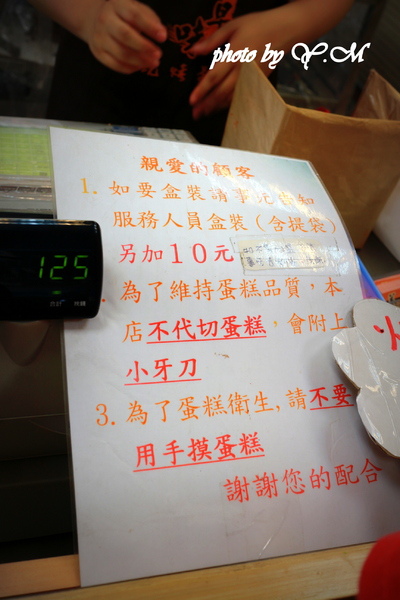 photo by Y.M
親愛的顧客
1. 如要盒裝請事先告知
服務人員盒裝（含提袋）
另加10元
125
為了維持蛋糕品質，本
店不代切蛋糕，會附上
小牙刀
3. 為了蛋糕衛生,請不要
用手摸蛋糕
謝謝您的配合